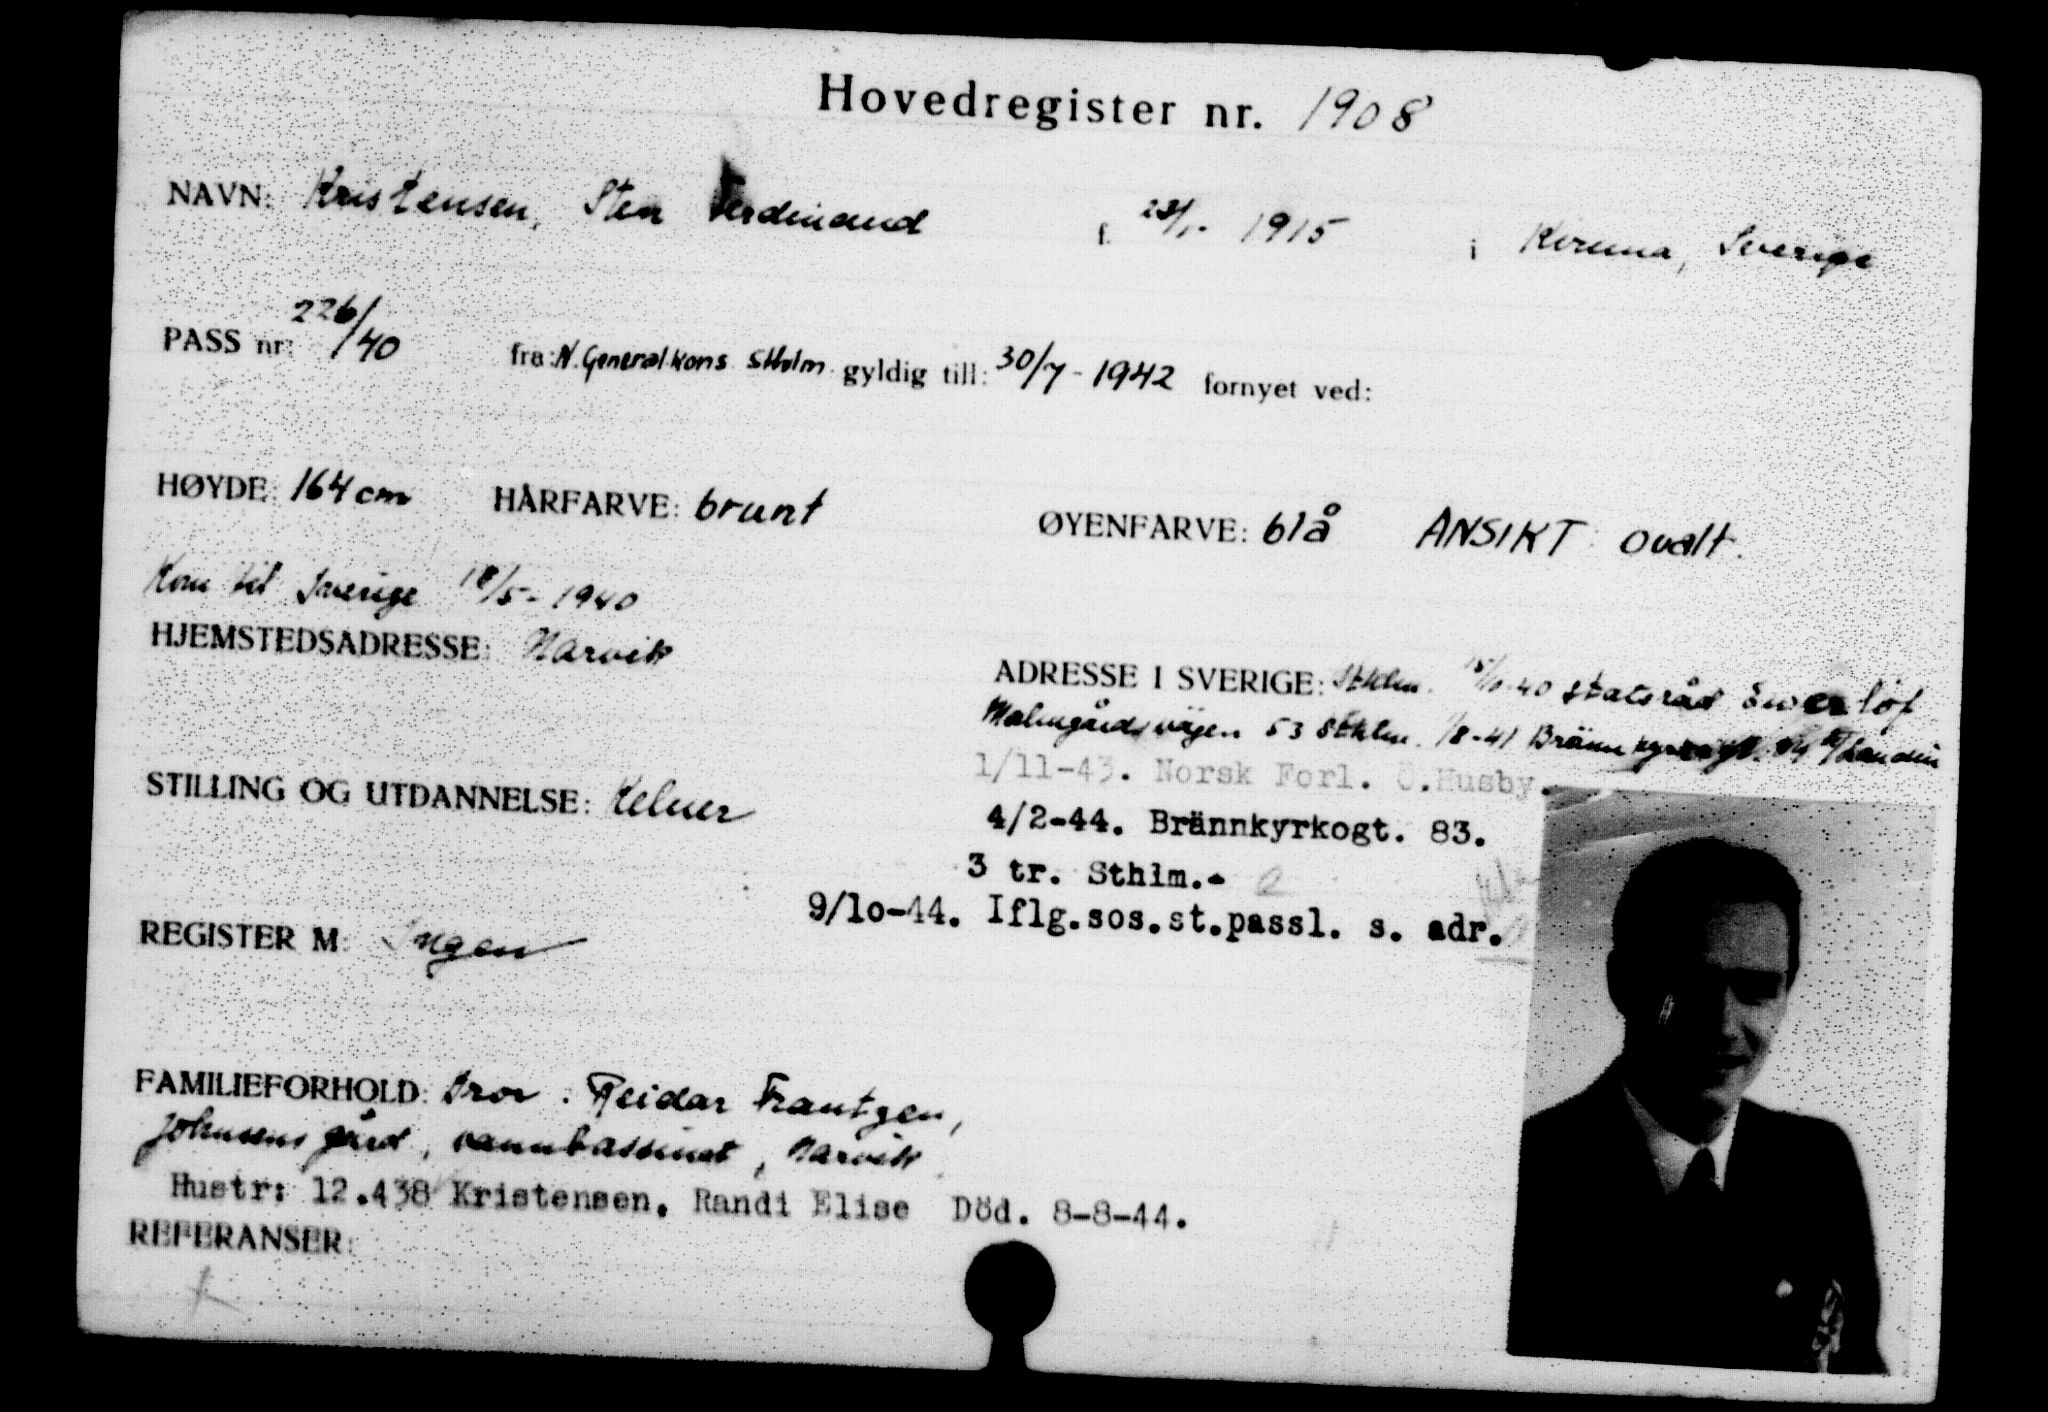 Hovedregister nr. 1908
NAVN: Kristensen, Sten Ferdinand f. 23/1- 1915 i Kiruna, Sverige
PASS nr: 226/40 fra: N. Generalkons Stholm. gyldig till: 30/7 - 1942 fornyet ved:
HØYDE: 164 cm HÅRFARVE: brunt ØYENFARVE: blå ANSIKT: ovalt.
Kom til Sverige 18/5- 1940
HJEMSTEDSADRESSE: Narvik
ADRESSE I SVERIGE: Sthlm. 15/10-40 statsråd
Malmgårdsvägen 53 Sthlm. 1/8-41
1/11-43. Norsk Forl. O.Husby.
STILLING OG UTDANNELSE: Kelner
4/2-44. Brännkyrkogt. 83.
3 tr. Sthlm.-
9/1o-44. Iflg.sos.st.passl. s. adr.
REGISTER M: Ingen
FAMILIEFORHOLD: Bror: Reidar Frantzen,
Johnsens gård, vannbassinet, Narvik
Hustr: 12.438 Kristensen. Randi Elise Död. 8-8-44.
REFERANSER: